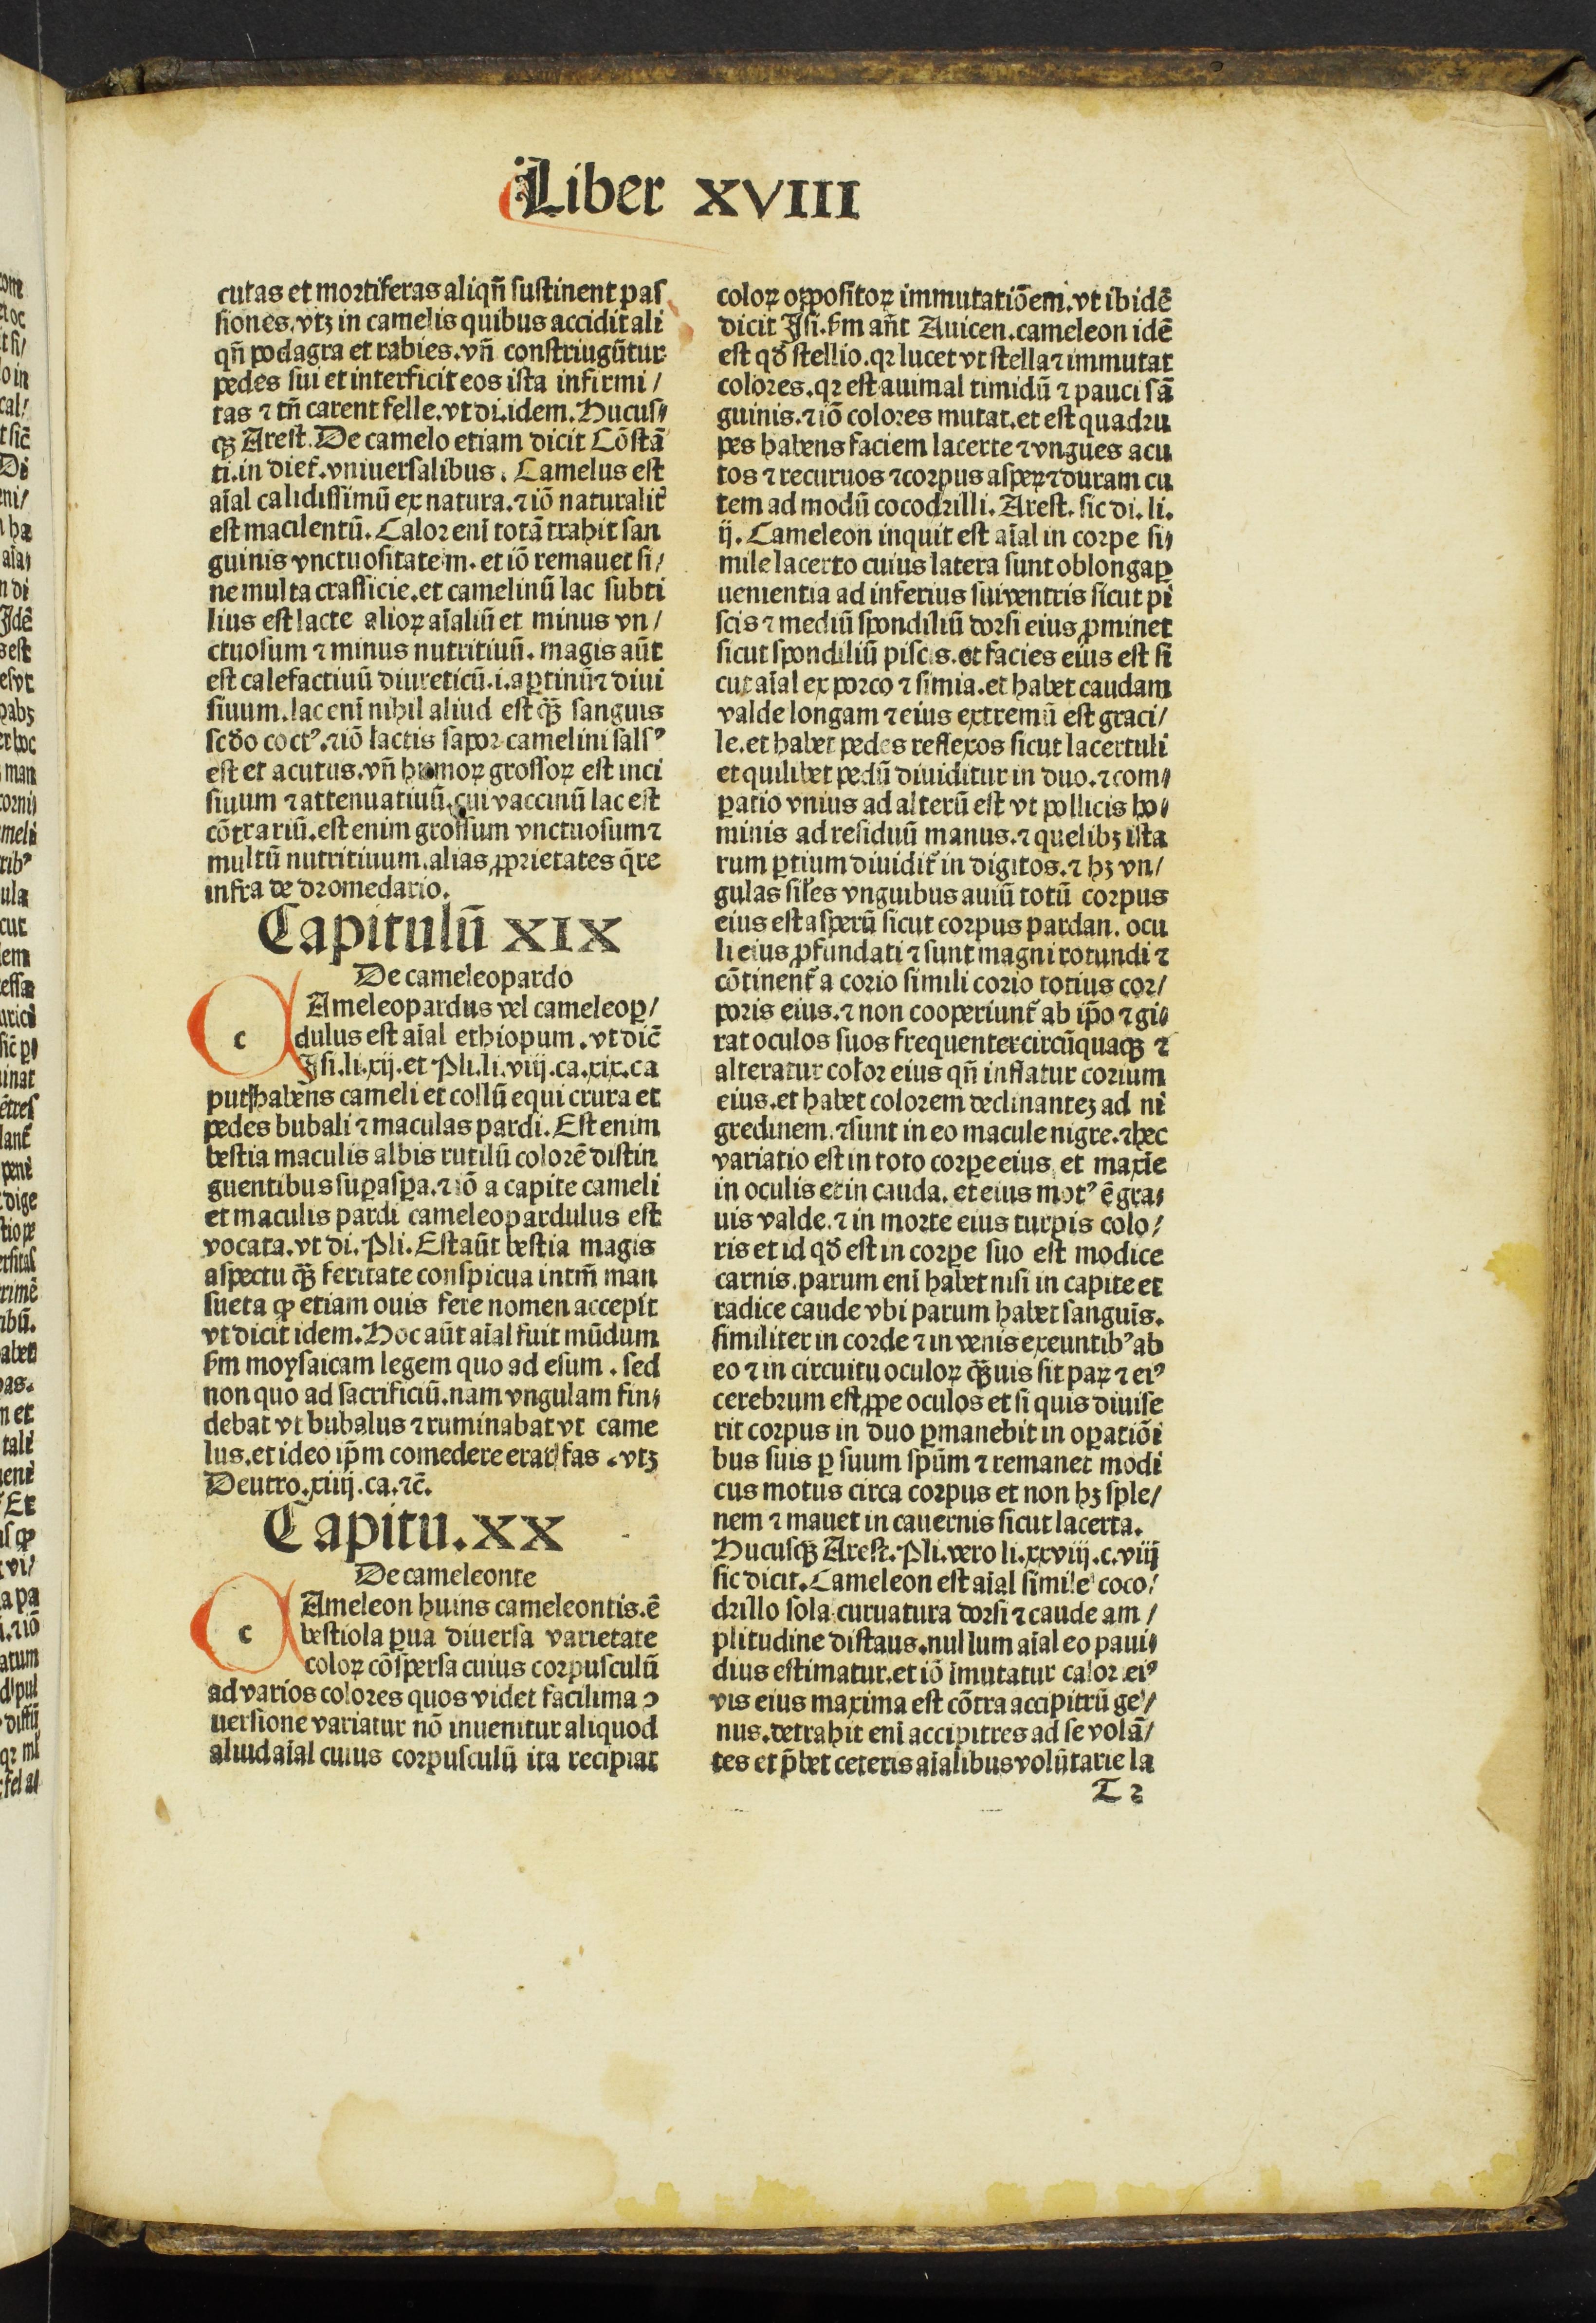 Liber XVIII
cutas et mortiferas aliqñ sustinent pas
siones. vtꝫ in camelis quibus accidit ali
qñ podagra et rabies. vñ constriugūtur
pedes sui et interficit eos ista infirmi/
tas ⁊ tñ carent felle. vt di. idem. Hucus⸗
qꝫ Arest. De camelo etiam dicit Cōstā
ti. in diet̄. vniuersalibus. Camelus est
aīal calidissimū ex natura. ⁊ iō naturalit̄
est macilentū. Calor enī totā trahit san
guinis vnctuositatem. et iō remauet si/
ne multa crassicie. et camelinū lac subti
lius est lacte alioꝝ aīaliū et minus vn/
ctuosum ⁊ minus nutritiuū. magis aūt
est calefactiuū diureticū. i. aꝑtinū ⁊ diui
siuum. lac enī nihil aliud est qꝫ̄ sanguis
scđo coctꝰ. ⁊ iō lactis sapor camelini salsꝰ
est et acutus. vñ humoꝝ grossoꝝ est inci
siuum ⁊ attenuatiuū. cui vaccinū lac est
cōtrariū. est enim grossum vnctuosum ⁊
multū nutritiuum. alias ꝓprietates q̄re
infra de dromedario.
Capitulū XIX
De cameleopardo
c Ameleopardus vel cameleoꝑ/
dulus est aīal ethiopum. vt dic̄
Isi. li. xij. et Pli. li. viij. ca. xix. ca
put habens cameli et collū equi crura et
pedes bubali ⁊ maculas pardi. Est enim
bestia maculis albis rutilū colorē distin
guentibus suꝑasꝑa. ⁊ iō a capite cameli
et maculis pardi cameleopardulus est
vocata. vt di. Pli. Est aūt bestia magis
aspectu qꝫ̄ feritate conspicua intm̄ man
sueta ꝙ etiam ouis fere nomen accepit
vt dicit idem. Hoc aūt aīal fuit mūdum
ẜm moysaicam legem quo ad esum. sed
non quo ad sacrificiū. nam vngulam fin⸗
debat vt bubalus ⁊ ruminabat vt came
lus. et ideo ip̄m comedere erat fas. vtꝫ
Deutro. xiiij. ca. ⁊c̄.
Capitu. XX
De cameleonte
c Ameleon huins cameleontis. ē
bestiola ꝑua diuersa varietate
coloꝝ cōspersa cuius corpusculū
ad varios colores quos videt facilima ↄ
uersione variatur nō inuenitur aliquod
aliud aīal cuius corpusculū ita recipiat
coloꝝ oppositoꝝ immutatiōem. vt ibidē
dicit Isi. ẜm añt Auicen. cameleon idē
est qđ stellio. qꝛ lucet vt stella ⁊ immutat
colores. qꝛ est auimal timidū ⁊ pauci sā
guinis. ⁊ iō colores mutat. et est quadru
pes habens faciem lacerte ⁊ vngues acu
tos ⁊ recuruos ⁊ corpus aspeꝝ ⁊ duram cu
tem ad modū cocodrilli. Arest. sic di. li.
ij. Cameleon inquit est aīal in corꝑe si⸗
mile lacerto cuius latera sunt oblonga ꝑ
uenientia ad inferius sui ventris sicut pi
scis ⁊ mediū spondiliū dorsi eius ꝓminet
sicut spondiliū piscis. et facies eius est si
cut aīal ex porco ⁊ simia. et habet caudam
valde longam ⁊ eius extremū est graci/
le. et habet pedes reflexos sicut lacertuli
et quilibet pedū diuiditur in duo. ⁊ com⸗
ꝑatio vnius ad alterū est vt pollicis ho⸗
minis ad residuū manus. ⁊ quelibꝫ ista
rum ꝑtium diuidit̄ in digitos. ⁊ hꝫ vn/
gulas sil̄es vnguibus auiū totū corpus
eius est asperū sicut corpus pardan. ocu
li eius ꝓfundati ⁊ sunt magni rotundi ⁊
cōtinent̄ a corio simili corio totius cor/
poris eius. ⁊ non cooperiunt̄ ab ip̄o ⁊ gi⸗
rat oculos suos frequenter circūquaqꝫ ⁊
alteratur color eius qñ inflatur corium
eius. et habet colorem declinanteꝫ ad ni
gredinem. ⁊ sunt in eo macule nigre. ⁊ hec
variatio est in toto corꝑe eius et maxīe
in oculis et in cauda. et eius motꝰ ē gra⸗
uis valde. ⁊ in morte eius turpis colo/
ris et id qđ est in corꝑe suo est modice
carnis. parum enī habet nisi in capite et
radice caude vbi parum habet sanguis.
similiter in corde ⁊ in venis exeuntibꝰ ab
eo ⁊ in circuitu oculoꝝ qꝫ̄uis sit paꝝ ⁊ eiꝰ
cerebrum est ꝓpe oculos et si quis diuise
rit corpus in duo ꝑmanebit in oꝑatiōi
bus suis ꝑ suum spūm ⁊ remanet modi
cus motus circa corpus et non hꝫ sple/
nem ⁊ mauet in cauernis sicut lacerta.
Hucusqꝫ Arest. Pli. vero li. xxviij. c. viij
sic dicit. Cameleon est aīal simile coco/
drillo sola curuatura dorsi ⁊ caude am/
plitudine distaus. nullum aīal eo paui⸗
dius estimatur. et iō īmutatur calor eiꝰ
vis eius maxima est cōtra accipitrū ge/
nus. detrahit enī accipitres ad se volā/
tes et p̄bet ceteris aīalibus volūtarie la
T 2